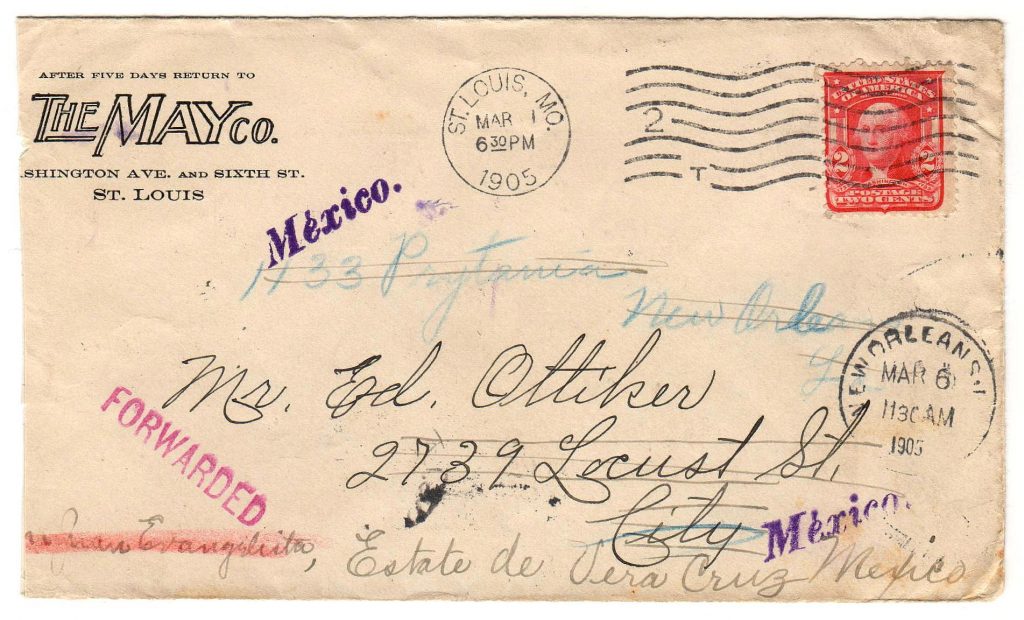 AFTER FIVE DAYS RETURN TO
THE MAY CO.
SHINGTON AVE. AND SIXTH ST.
ST. LOUIS
ST. LOUIS, MO.
MAR 1
6 30 PM
1905
2
T
UNITED STATES
OF AMERICA
2 2
POSTAGE
TWO CENTS
México.
1133 Prytania
New Orleans
La
NEW ORLEANS
MAR 6
11 30 AM
1905
Mr. Ed. Ottiker
2739 Locust St.
City
FORWARDED
México.
n Juan Evangelista, Estate de Vera Cruz Mexico